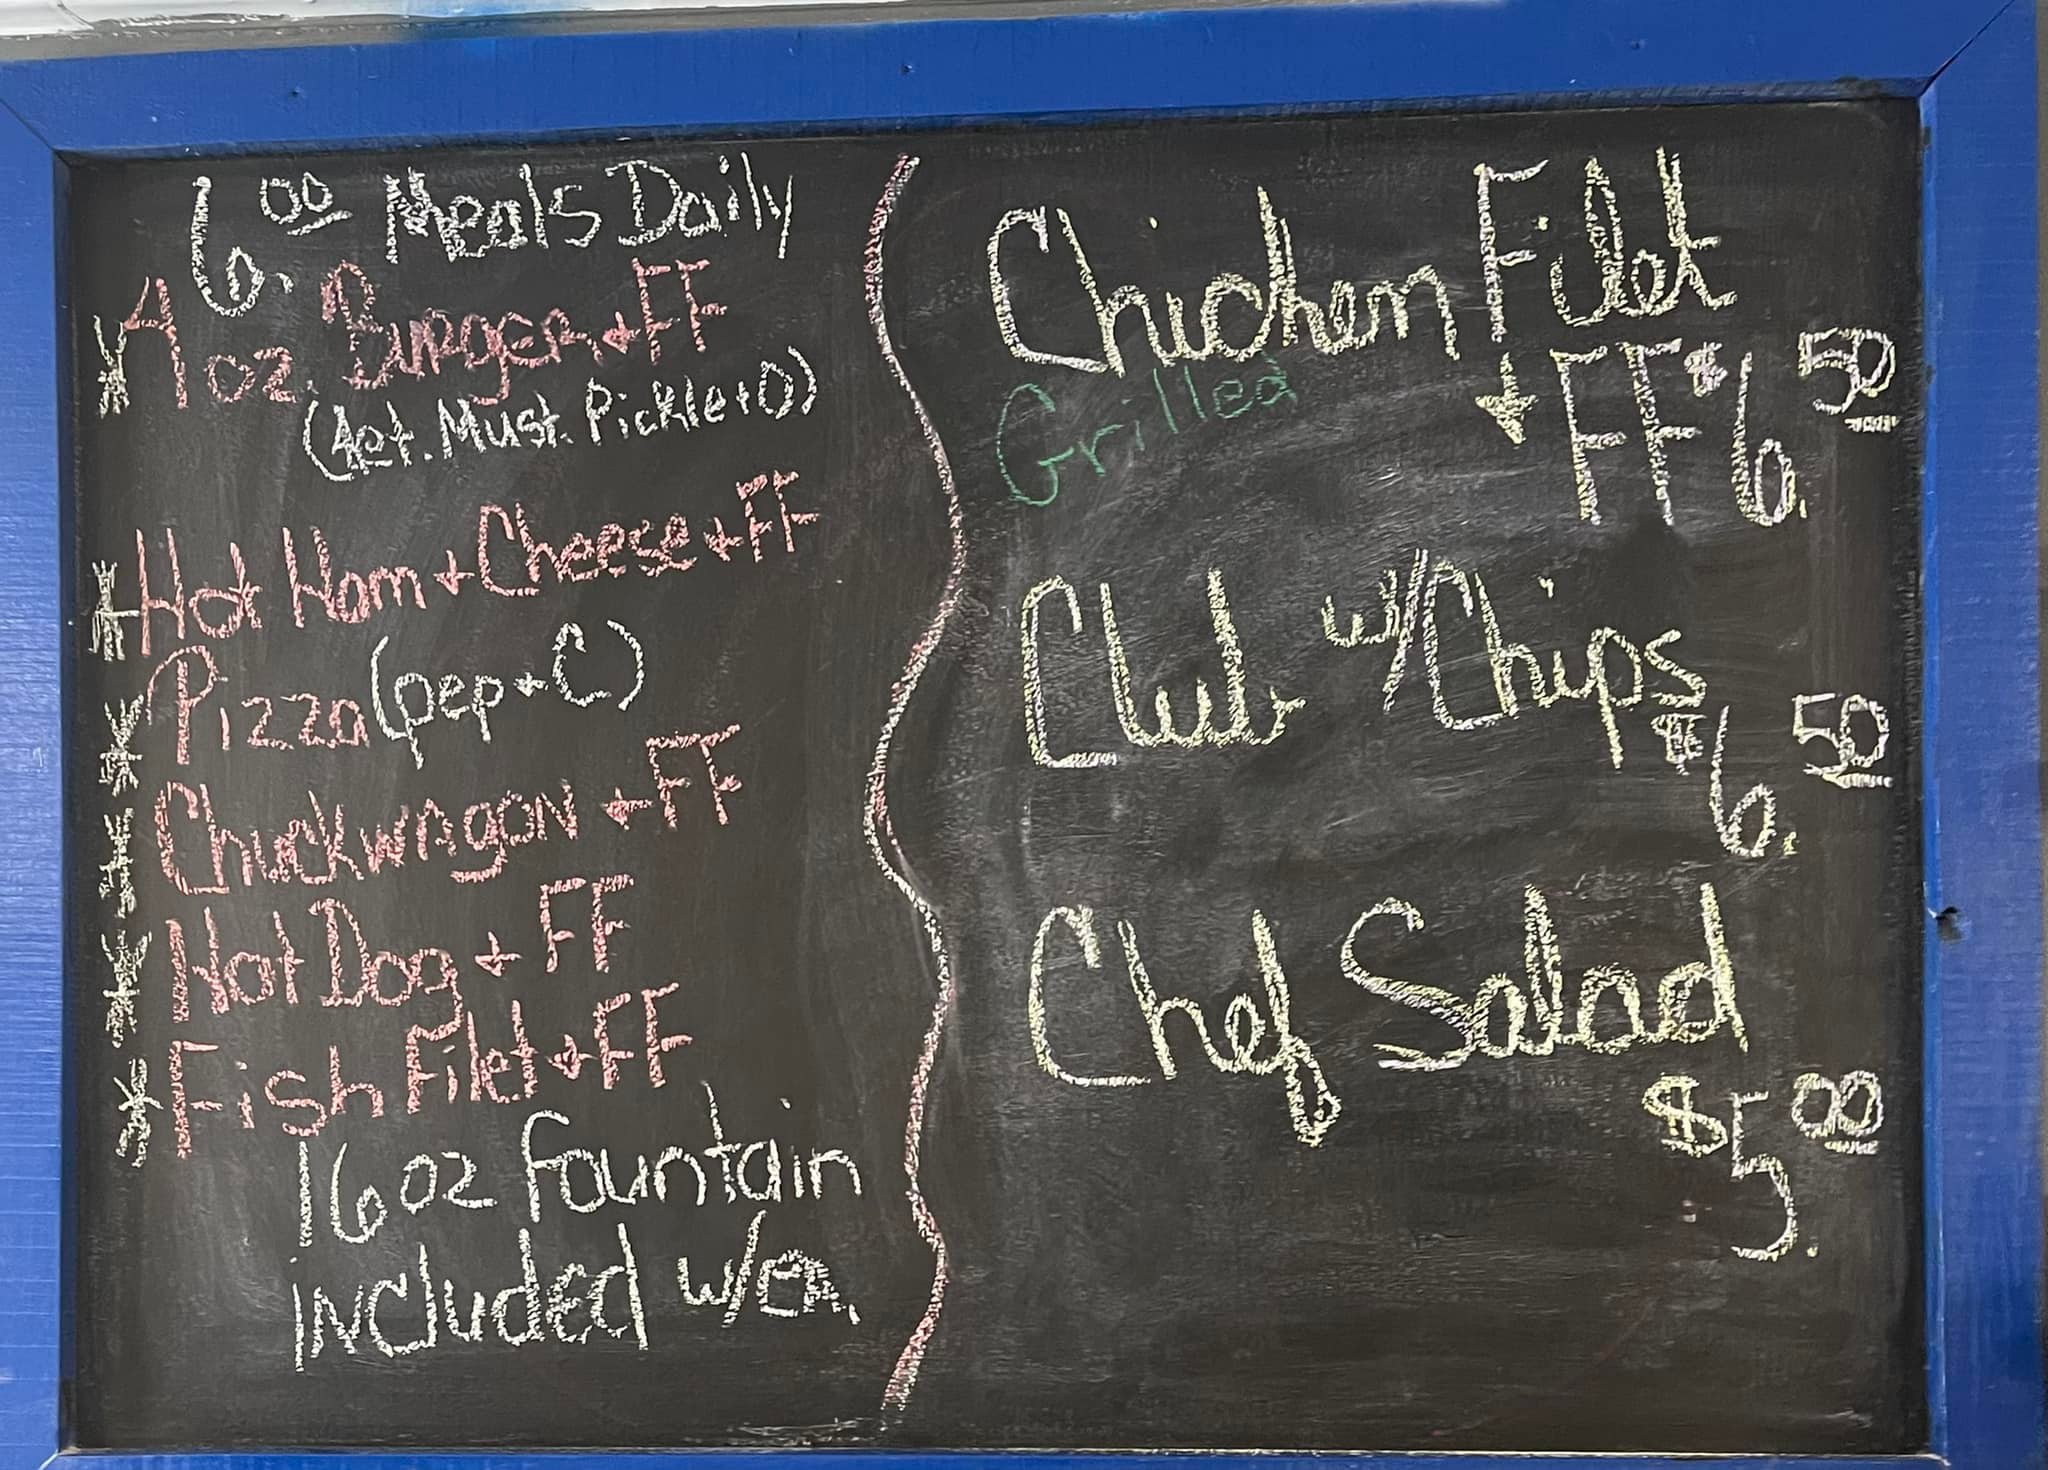 6.00 Meals Daily
4 oz. Burger + FF
(Ket. Must. Pickle + O)
Hot Ham + Cheese + FF
Pizza (pep + C)
Chuckwagon + FF
Hot Dog + FF
Fish Filet + FF
16 oz fountain
included w/ea.
Chicken Filet
Grilled
+ FF $6.50
Club w/Chips
$6.50
Chef Salad
$5.00